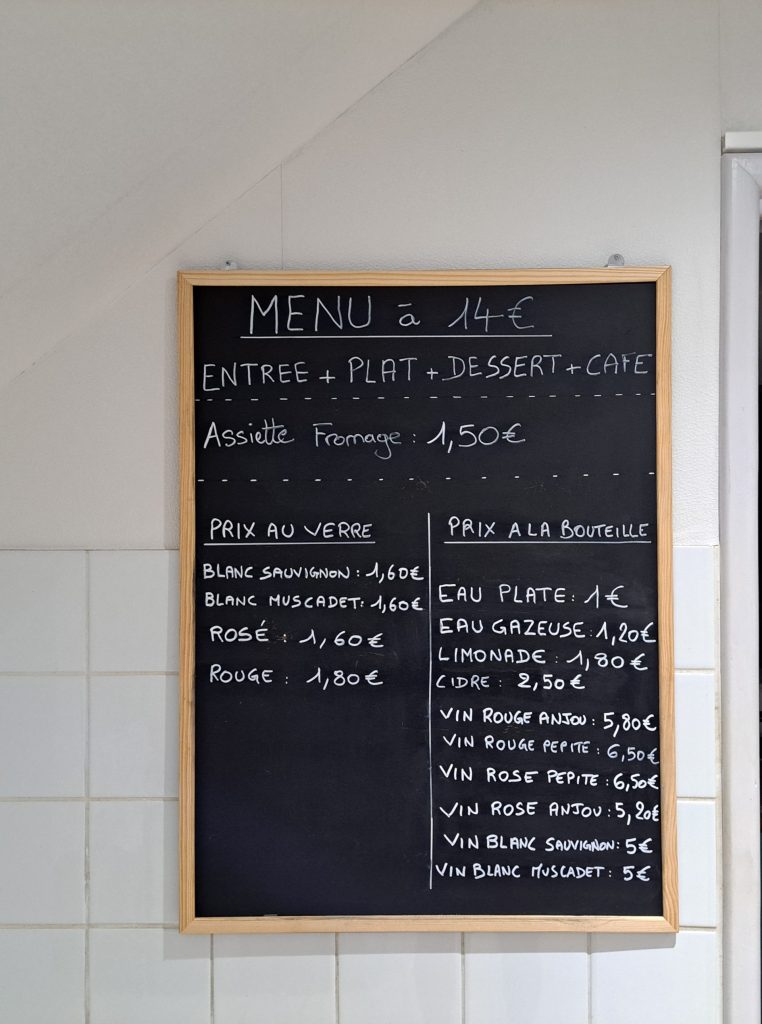 MENU à 14€
ENTREE + PLAT + DESSERT + CAFE
Assiette Fromage : 1,50€
PRIX AU VERRE
BLANC SAUVIGNON : 1,60€
BLANC MUSCADET : 1,60€
ROSÉ : 1,60€
ROUGE : 1,80€
PRIX A LA BOUTEILLE
EAU PLATE : 1€
EAU GAZEUSE : 1,20€
LIMONADE : 1,80€
CIDRE : 2,50€
VIN ROUGE ANJOU : 5,80€
VIN ROUGE PEPITE : 6,50€
VIN ROSE PEPITE : 6,50€
VIN ROSE ANJOU : 5,20€
VIN BLANC SAUVIGNON : 5€
VIN BLANC MUSCADET : 5€